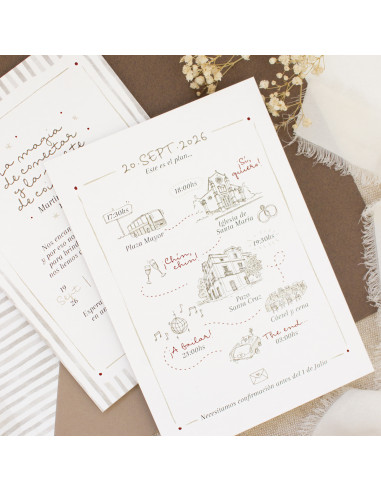 la magia
de conectar
y la
de co
Martí
Nos encan
y por eso
para
nos hemos
19
Sept
26
Espera
en
20·SEPT·2026
Este es el plan...
18:00hs
Sí,
quiero!
17:30hs
Plaza Mayor
Iglesia de
Santa María
19:30hs
¡Chin,
chin!
Pazo
Santa Cruz
Cóctel y cena
A bailar
23:00hs
The end
03:00hs
Necesitamos confirmación antes del 1 de Julio